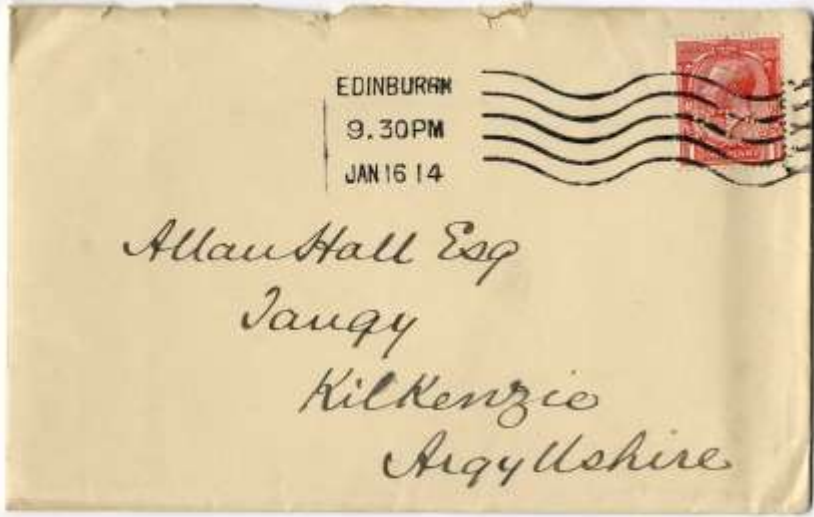 EDINBURGH
9.30PM
JAN 16 14
Allan Hall Esq
Tangy
KilKenzie
Argyllshire